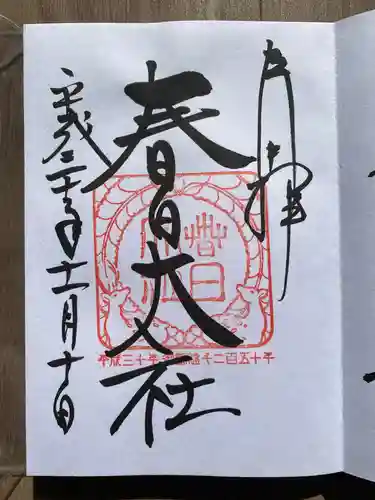 奉拝
春日大社
平成三十年十一月十日
平成三十年 御創建千二百五十年